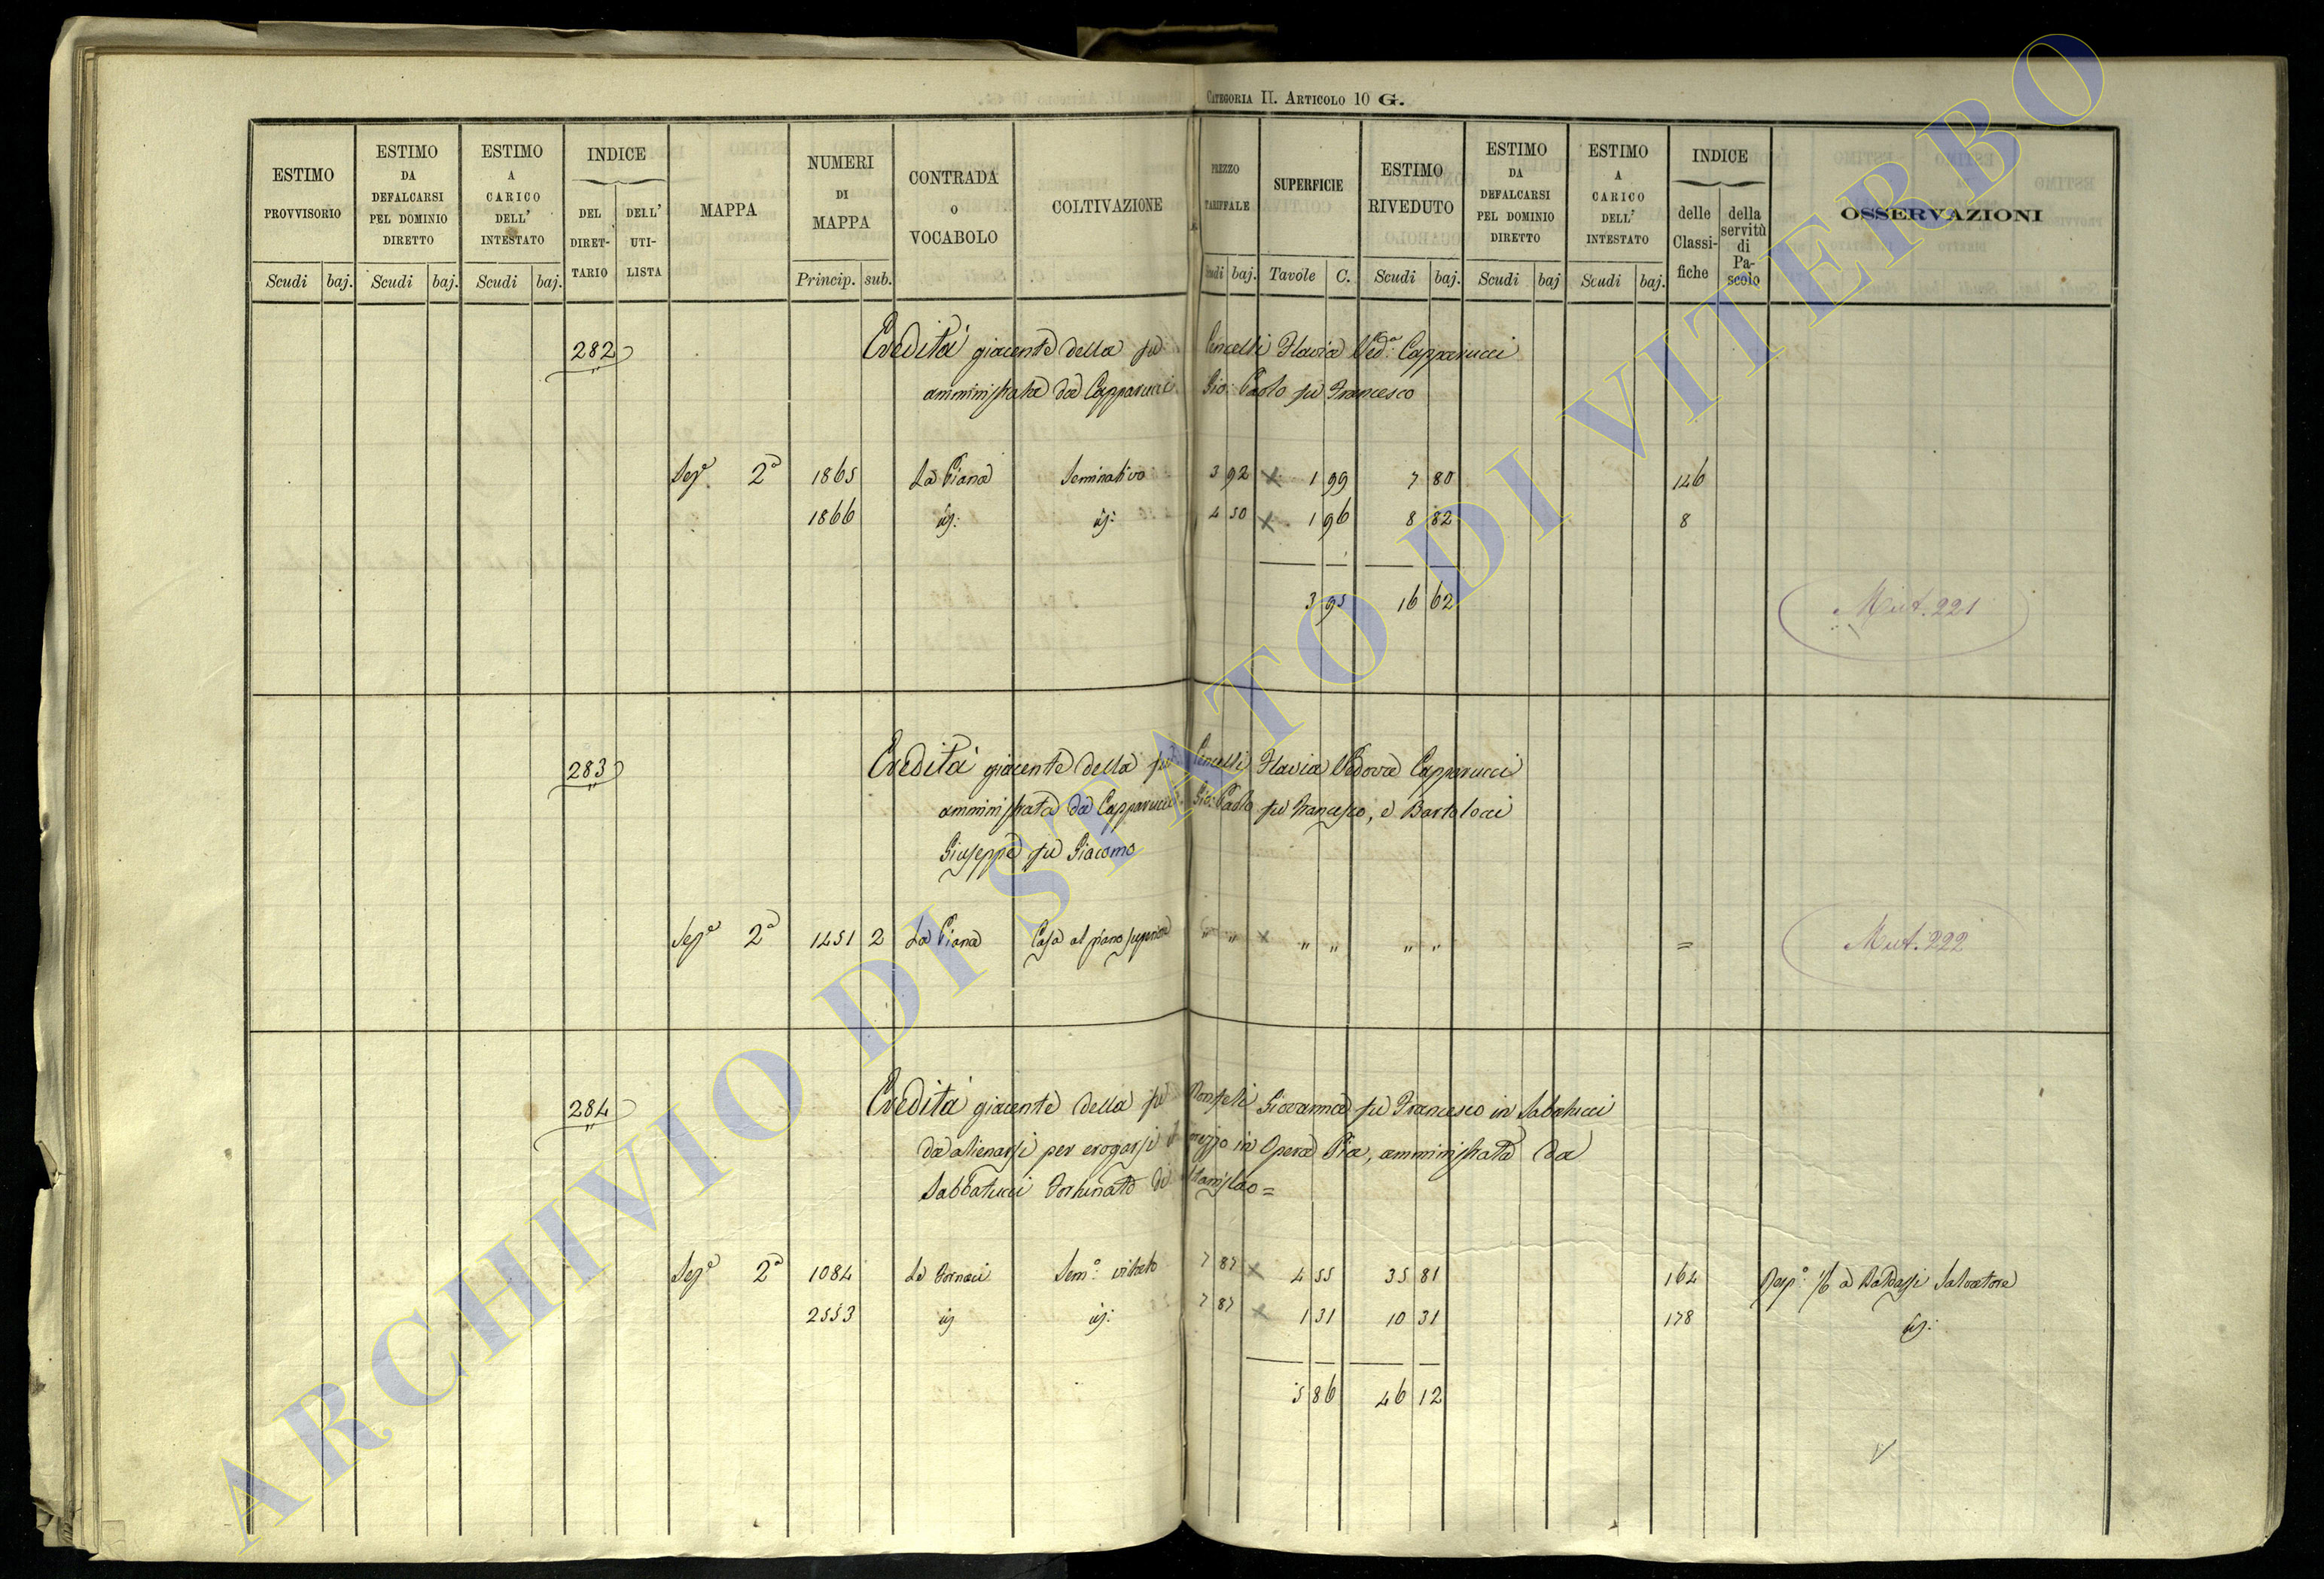 CATEGORIA II. ARTICOLO 10 G.
ESTIMO PROVVISORIO
ESTIMO DA DEFALCARSI PEL DOMINIO DIRETTO
ESTIMO A CARICO DELL' INTESTATO
INDICE
DEL DIRET-TARIO
DELL' UTI-LISTA
MAPPA
NUMERI DI MAPPA
CONTRADA O VOCABOLO
COLTIVAZIONE
PREZZO TARIFFALE
SUPERFICIE
ESTIMO RIVEDUTO
ESTIMO DA DEFALCARSI PEL DOMINIO DIRETTO
ESTIMO A CARICO DELL' INTESTATO
INDICE
delle Classi-fiche
della servitù di Pa-scolo
OSSERVAZIONI
Scudi baj. Scudi baj. Scudi baj. Princip. sub. Scudi baj. Tavole C. Scudi baj. Scudi baj Scudi baj.
282 Eredità giacente della fù Cencelli Flavia Ved.a Capparucci
amministrata da Capparucci Gio: Paolo fù Francesco
Sez.e 2a 1865 La Piana Seminativo 3 92 x 1 99 7 80 126
1866 id: id: 4 50 x 1 96 8 82 8
3 95 16 62
Mut. 221
283 Eredità giacente della fù Cencelli Flavia Vedova Capparucci
amministrata da Capparucci Gio: Paolo fù Francesco, e Bartolocci
Giuseppe fù Giacomo
Sez.e 2a 1451 2 La Piana Casa al piano superiore " " x " " " " = Mut. 222
284 Eredità giacente della fù Giovanna fù Francesco in Sabatucci
da alienarsi per erogarsi il prezzo in Opera Pia, amministrata da
Sabbatucci Fortunato di Stanislao =
Sez.e 2a 1084 Le Fornaci Sem.o vitato 7 87 x 4 55 35 81 164 a Baldassi Salvatore
2553 id id: 7 87 x 1 31 10 31 178 id:
5 86 46 12
ARCHIVIO DI STATO DI VITERBO